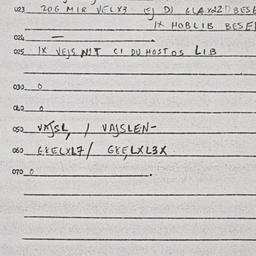 023 20G MIR VELX3 EJ DJ GLAX22 BESE
1X HOBLIB BESE
024 —
025 1X VEJS NIT CI DU HOST OS LIB
030 0
040 0
050 VAJSL / VAJSLEN-
060 GXELXL7/ GXELXL3X
070 0 .